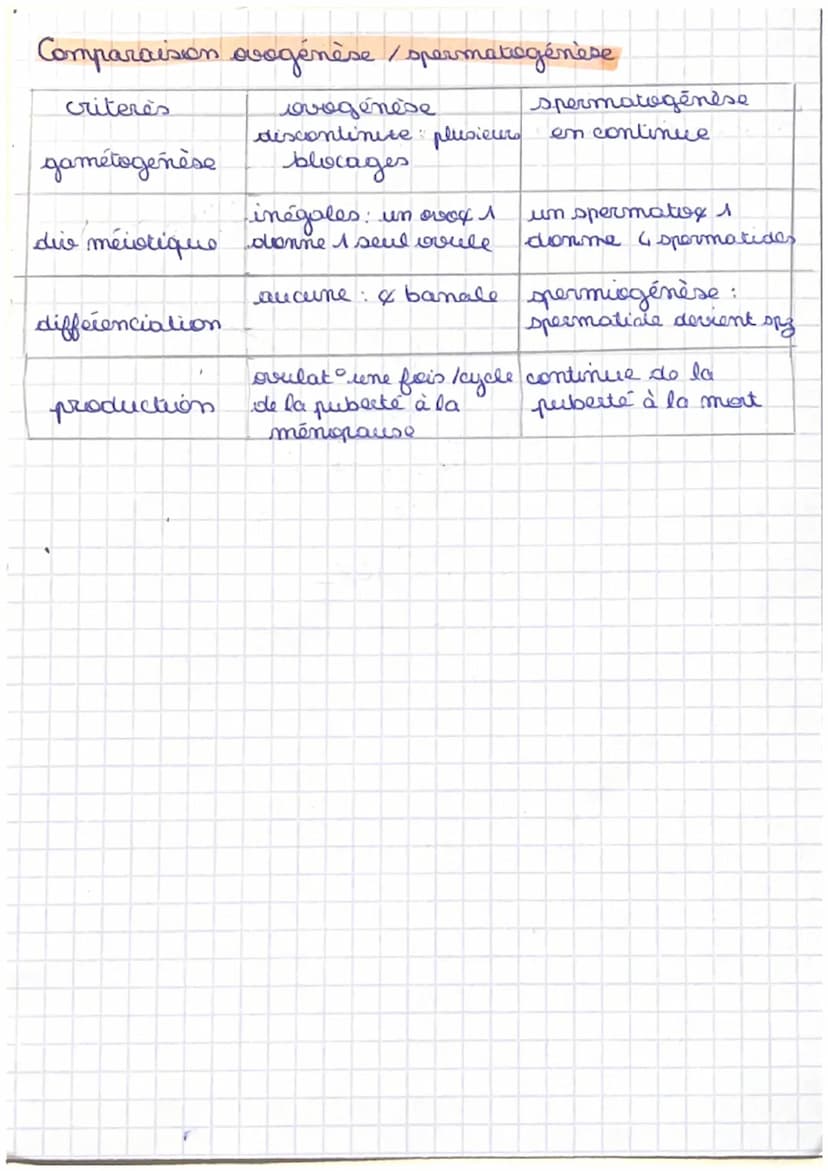 Comparaison ovogénèse / spermatogénèse
critères ovogénèse spermatogénèse
gamétogenèse discontinue : plusieurs blocages en continue
div méiotique inégales : un ovo¢ 1 donne 1 seul ovule un spermato¢ 1 donne 4 spermatides
différenciation aucune : ¢ banale spermiogénèse : spermatide devient spz
production ovulat° une fois /cycle de la puberté à la ménopause continue de la puberté à la mort